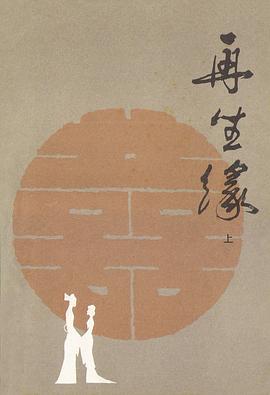 再生缘
上